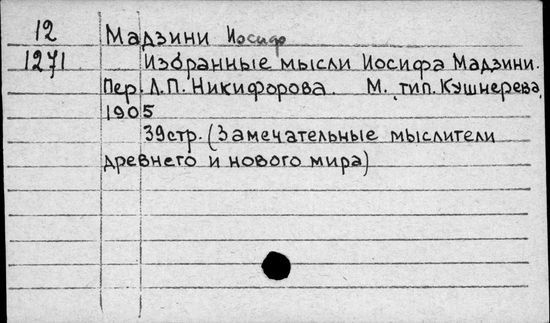 12 Мадзини Иосиф
1271 Избранные мысли Иосифа Мадзини.
Пер. Л.П. Никифорова. М. тип. Кушнерева,
1905
39 стр. (Замечательные мыслители
древнего и нового мира)